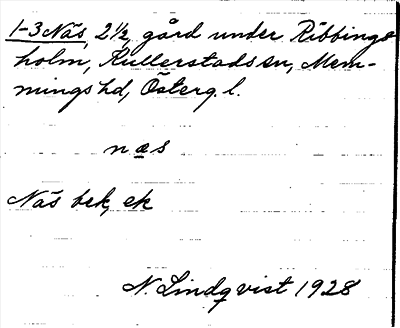 1-3 Näs, 2 1/2 gård under Ribbings-
holm, Kullerstads sn, Mem-
mings hd, Österg. l.
næs
Näs bek, ek
N. Lindqvist 1928